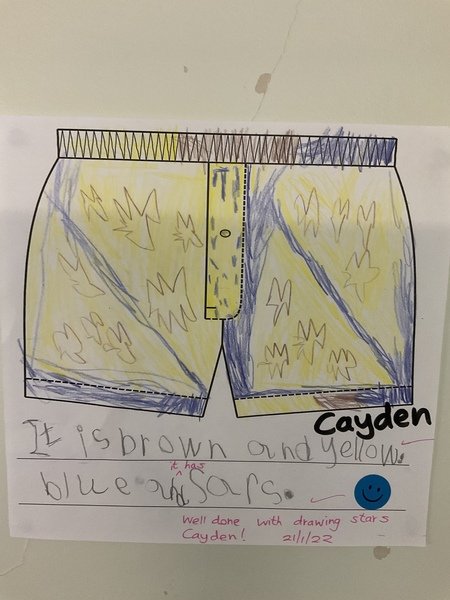 Cayden
It is brown and yellow.
it has
blue and Sars.
Well done with drawing stars
Cayden! 21/1/22